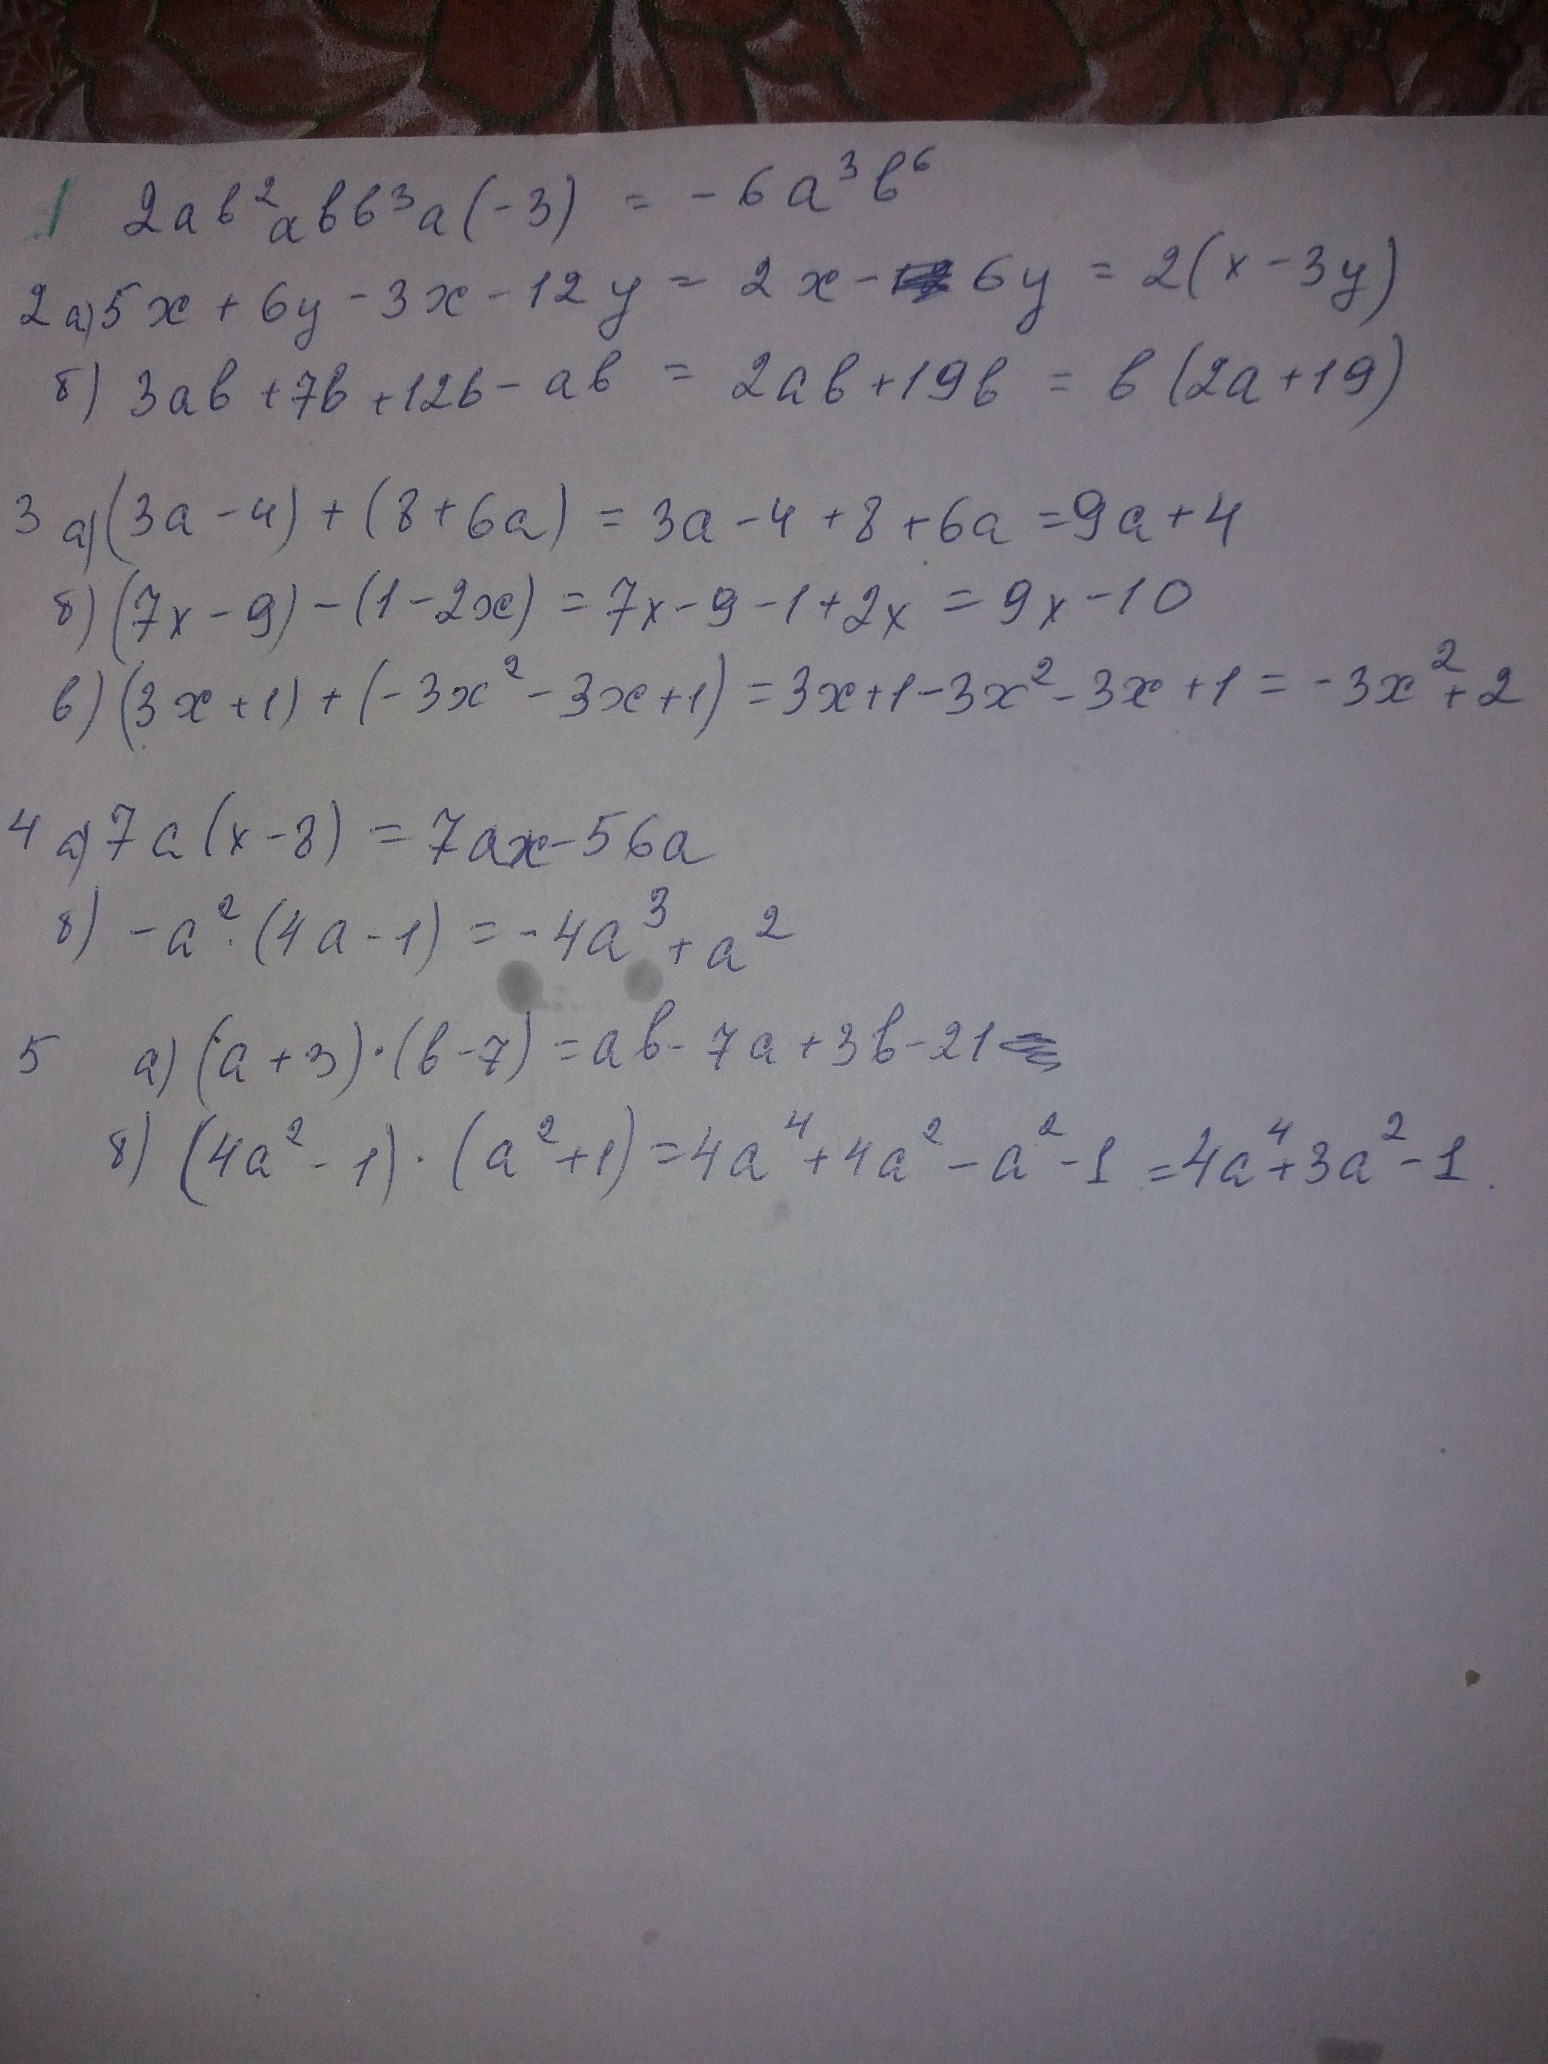 1 2ab²abb³a(-3) = -6a³b⁶
2 а) 5x + 6y - 3x - 12y = 2x - 6y = 2(x - 3y)
б) 3ab + 7b + 12b - ab = 2ab + 19b = b(2a + 19)
3 а) (3a - 4) + (8 + 6a) = 3a - 4 + 8 + 6a = 9a + 4
б) (7x - 9) - (1 - 2x) = 7x - 9 - 1 + 2x = 9x - 10
в) (3x + 1) + (-3x² - 3x + 1) = 3x + 1 - 3x² - 3x + 1 = -3x² + 2
4 а) 7a(x - 8) = 7ax - 56a
б) -a² · (4a - 1) = -4a³ + a²
5 а) (a + 3) · (b - 7) = ab - 7a + 3b - 21
б) (4a² - 1) · (a² + 1) = 4a⁴ + 4a² - a² - 1 = 4a⁴ + 3a² - 1.